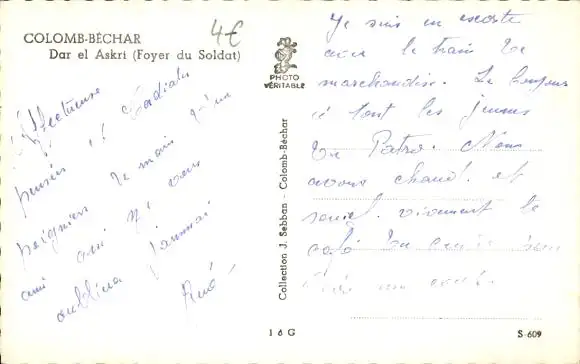 COLOMB-BÉCHAR
Dar el Askri (Foyer du Soldat)
4€
PHOTO
VÉRITABLE
Je suis en escorte
avec le train de
marchandise. Le bonjour
à tout les jeunes
du Patro. Nous
avons chaud et
soif. vivement le
café
Affectueuse
pensée et cordiales
poignées de main d'un
ami qui ne vous
oubliera jammai
René
Collection J. Sebban - Colomb-Béchar
1 6 G
S-609